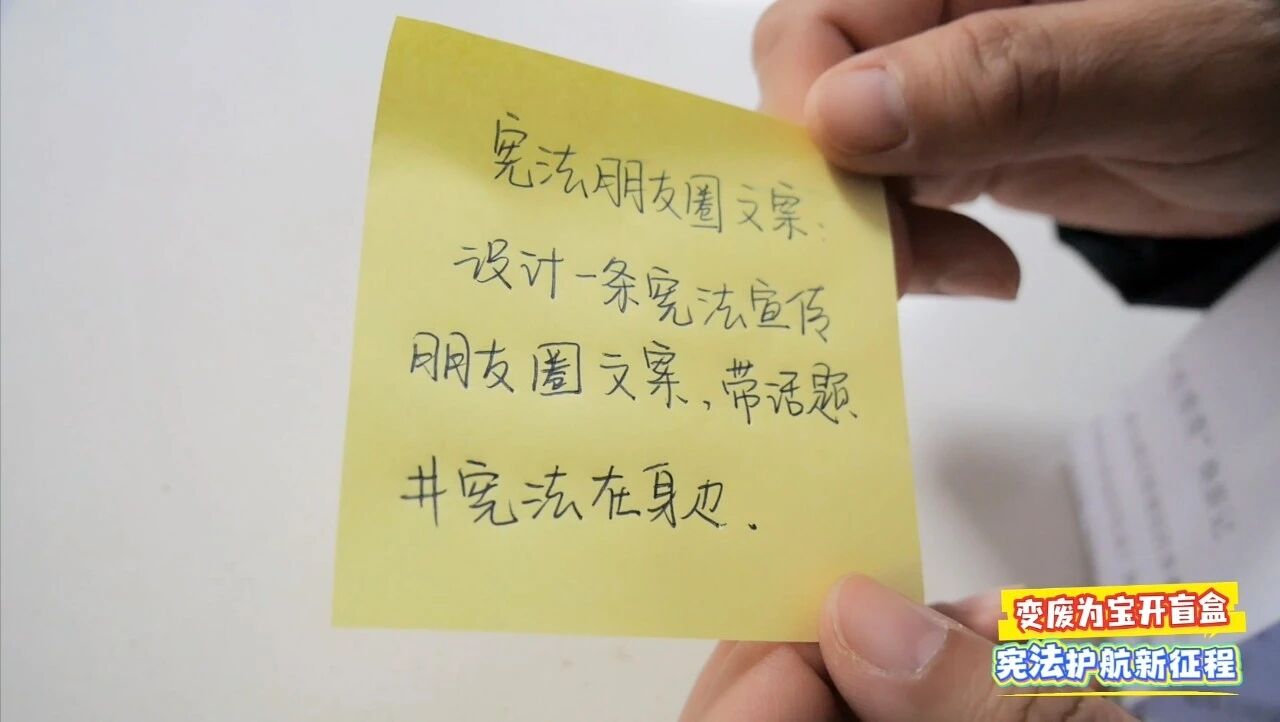 宪法朋友圈文案：
设计一条宪法宣传
朋友圈文案，带话题
#宪法在身边.
变废为宝开盲盒
宪法护航新征程